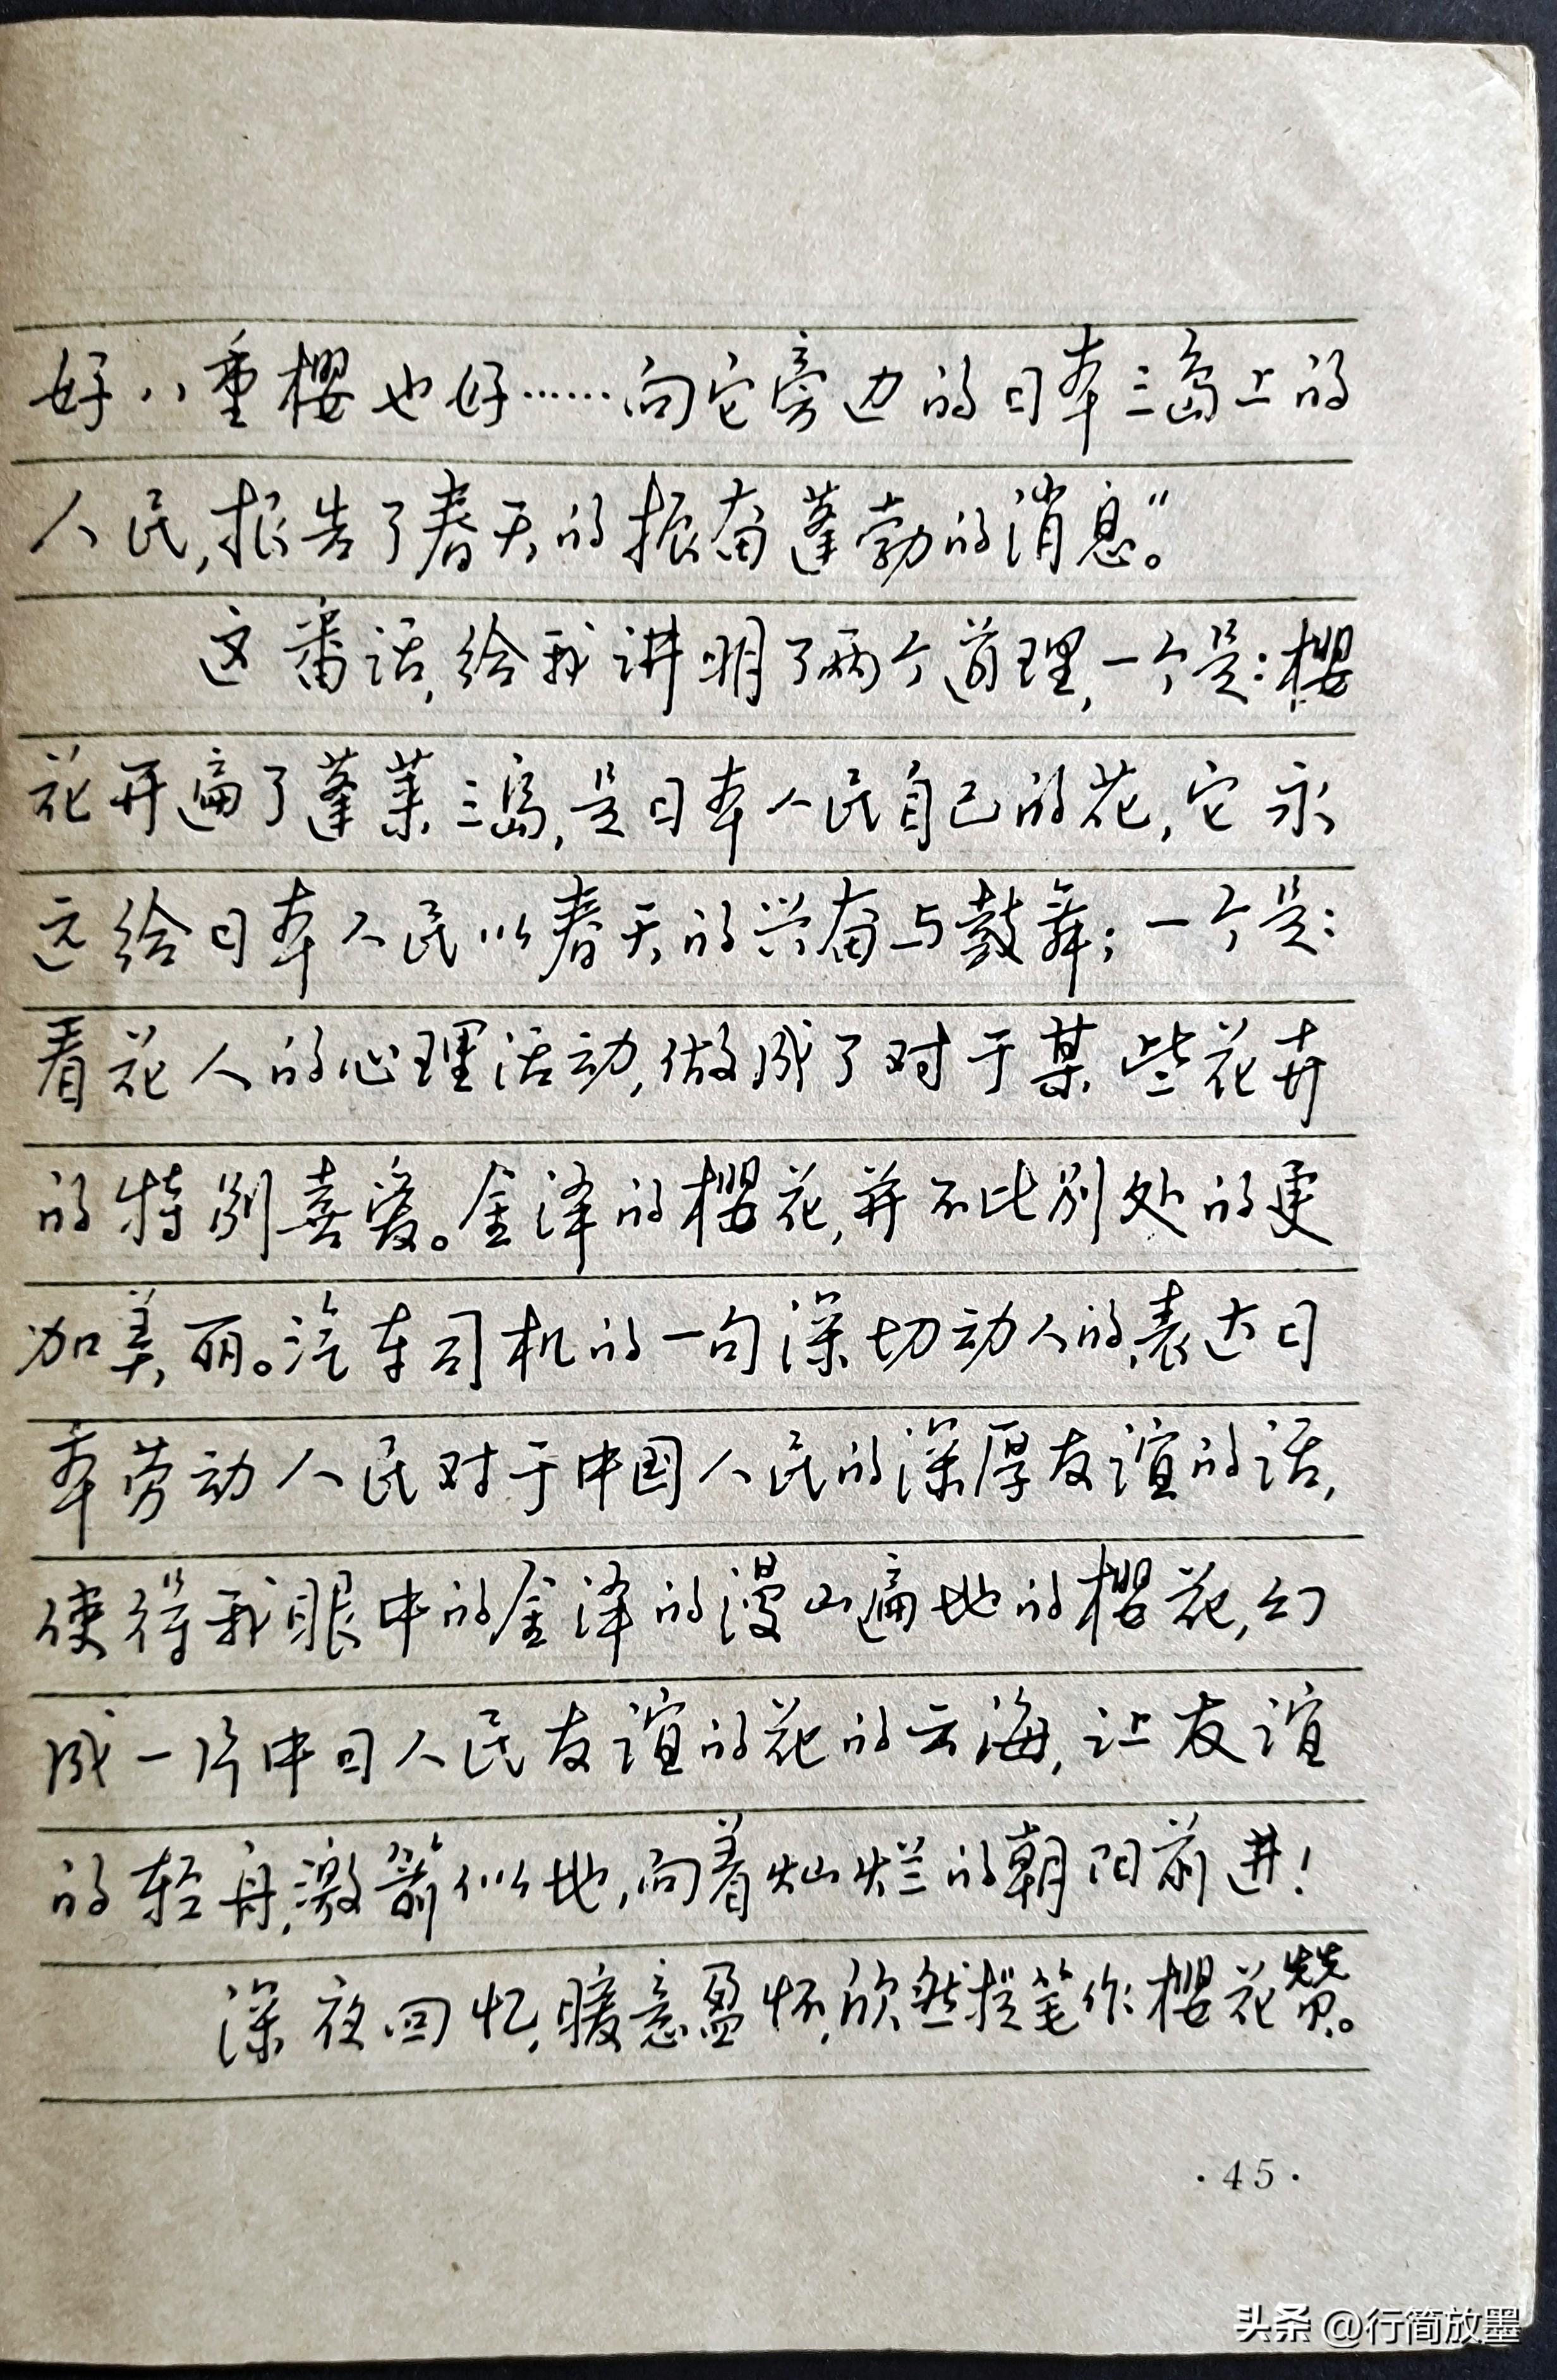 好八重樱也好……向它旁边的日本三岛上的
人民,报告了春天的振奋蓬勃的消息。”
这番话,给我讲明了两个道理,一个是:樱
花开遍了蓬莱三岛,是日本人民自己的花,它永
远给日本人民以春天的兴奋与鼓舞;一个是:
看花人的心理活动,做成了对于某些花卉
的特别喜爱。金泽的樱花,并不比别处的更
加美丽。汽车司机的一句深切动人的,表达日
本劳动人民对于中国人民的深厚友谊的话,
使得我眼中的金泽的漫山遍地的樱花,幻
成一片中日人民友谊的花的云海,让友谊
的轻舟,激箭似地,向着灿烂的朝阳前进!
深夜回忆,暖意盈怀,欣然提笔作樱花赞。
·45·
头条 @行简放墨